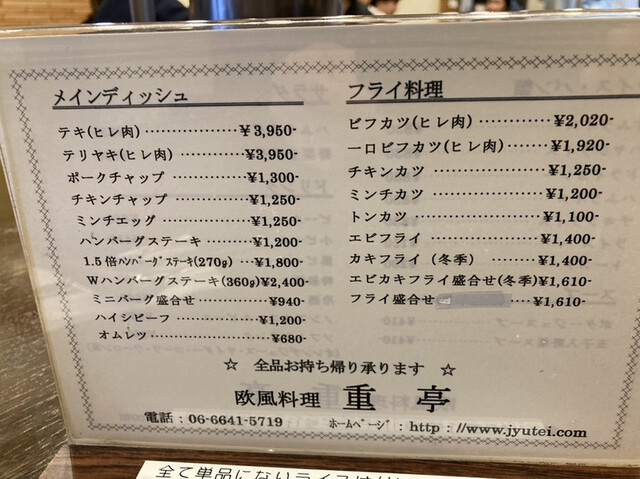 メインディッシュ
テキ(ヒレ肉) ‥‥‥‥‥‥ ¥3,950-
テリヤキ(ヒレ肉) ‥‥‥‥‥ ¥3,950-
ポークチャップ ‥‥‥‥‥‥ ¥1,300-
チキンチャップ ‥‥‥‥‥‥ ¥1,250-
ミンチエッグ ‥‥‥‥‥‥‥ ¥1,250-
ハンバーグステーキ ‥‥‥‥ ¥1,200-
1.5倍ハンバーグステーキ(270g) ‥‥ ¥1,800-
Wハンバーグステーキ(360g) ¥2,400-
ミニバーグ盛合せ ‥‥‥‥‥ ¥940-
ハイシビーフ ‥‥‥‥‥‥‥ ¥1,200-
オムレツ ‥‥‥‥‥‥‥‥‥ ¥680-
フライ料理
ビフカツ(ヒレ肉) ‥‥‥‥ ¥2,020-
一口ビフカツ(ヒレ肉) ‥‥ ¥1,920-
チキンカツ ‥‥‥‥‥‥‥ ¥1,250-
ミンチカツ ‥‥‥‥‥‥‥ ¥1,200-
トンカツ ‥‥‥‥‥‥‥‥ ¥1,100-
エビフライ ‥‥‥‥‥‥‥ ¥1,400-
カキフライ (冬季) ‥‥‥‥ ¥1,400-
エビカキフライ盛合せ(冬季)¥1,610-
フライ盛合せ ‥‥ ¥1,610-
☆ 全品お持ち帰り承ります ☆
欧風料理 重亭
電話:06-6641-5719 ホームページ:http://www.jyutei.com